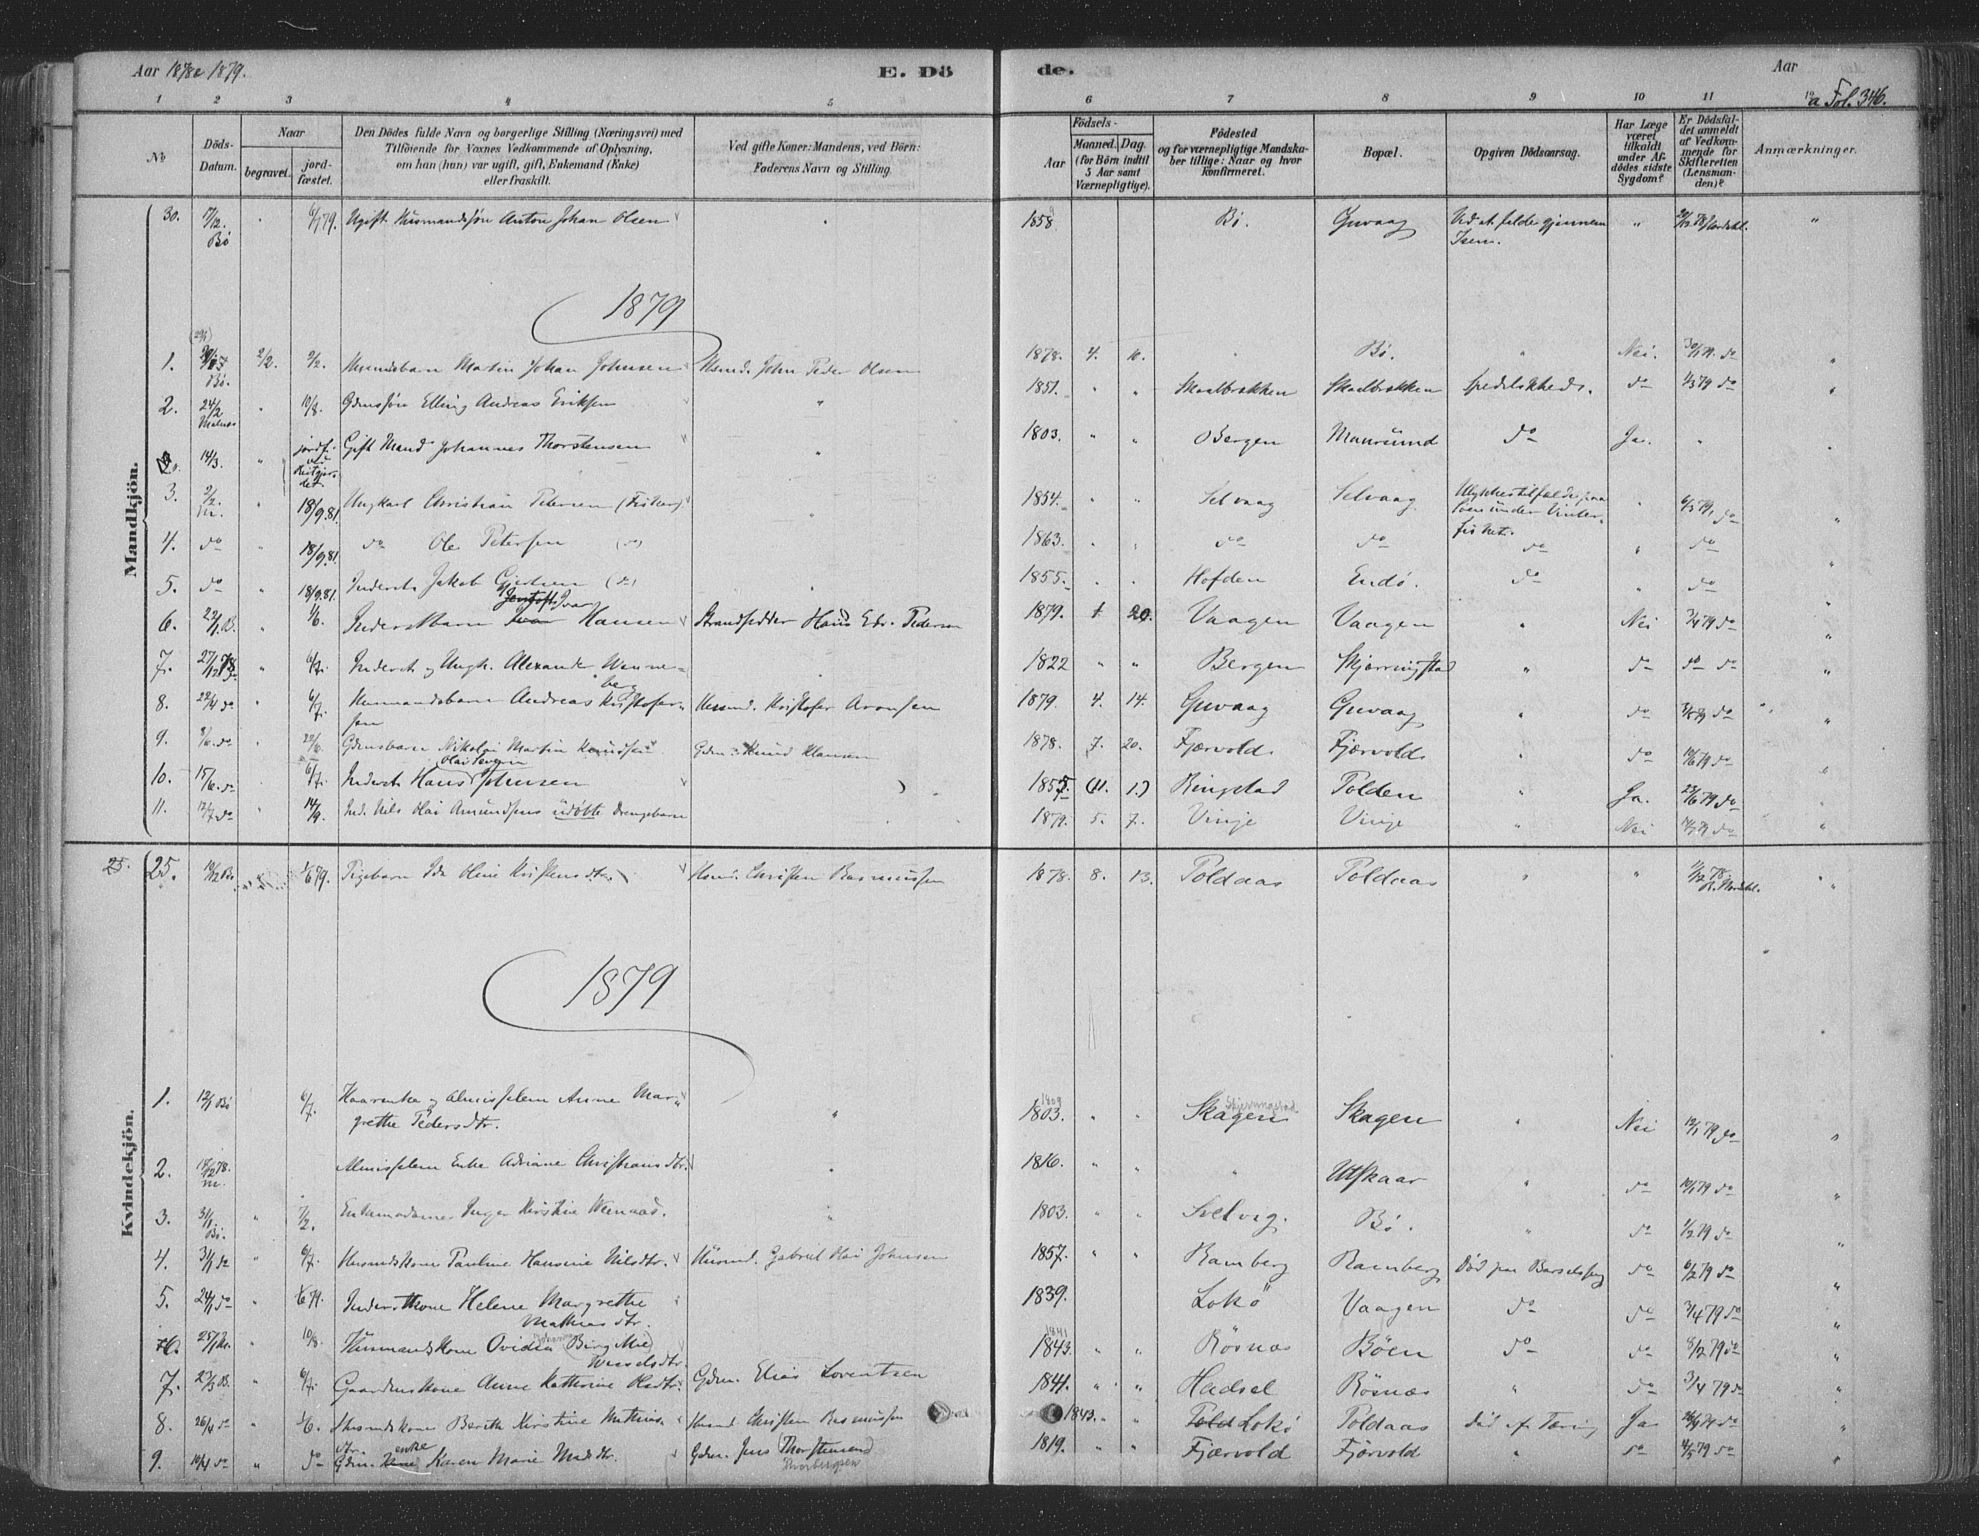 Aar 1878 & 1879.
E. Dö
de.
Aar
Fol. 346.
1 2 3 4 5 6 7 8 9 10 11 12
No
Döds-Datum.
Naar
begravet.
jord-fæstet.
Den Dödes fulde Navn og borgerlige Stilling (Næringsvei) med
Tilföiende for Voxnes Vedkommende af Oplysning,
om han (hun) var ugift, gift, Enkemand (Enke)
eller fraskilt.
Ved gifte Koner: Mandens, ved Börn:
Faderens Navn og Stilling.
Födsels-
Aar
Maaned.
Dag.
(for Börn indtil
5 Aar samt
Værnepligtige).
Födested
og for værnepligtige Mandska-
ber tillige: Naar og hvor
konfirmeret.
Bopæl.
Opgiven Dödsaarsag.
Har Læge
været
tilkaldt
under Af-
dödes sidste
Sygdom?
Er Dödsfal-
det anmeldt
af Vedkom-
mende for
Skifteretten
(Lensman-
den)?
Anmærkninger.
Mandkjön.
30. 17/12 Bö 6/7 79. Ugift Husmandssön Anton Johan Olsen 1858 Bö. Guvaag Ved at falde gjennem Isen.
1879
1. Bö. 2/2. 9/2. Martin Johan Johnsen Husmd. John Peder Olsen 1878. 4. 10. Bö. Nei.
2. 24/2 10/8. Gdmssön Elling Andreas Eriksen 1851. Skaalbrækken Skaalbrækken Spedalskheds. do 1/3 79 do
14/3. Gift Mand Johannes Thorstensen 1803. Bergen Maursund do Ja.
3. 2/2. 18/9.81. Ungkarl Christian Petersen (Fisker) 1854. Selvaag Selvaag Ulykkestilfælde paa Söen under Vinter-fisket. 6/3 79, do
4. do 18/9.81. do Ole Petersen (do) 1863. do do do do
5. do 18/9.81. Inderst Jakob (do) 1855. Hofden Endö. do do
6. 1/6. Inderstbarn Ivar Hansen Strandsidder Hans Edv. Pedersen 1879. 1. 20. Vaagen Vaagen Nei 7/4 79 do
7. 27/12 78 6/7. Inderst og Ungk. Alexander Wenne-berg 1822 Bergen Skjerringstad do do do
8. 22/4 do 6/7. Husmandsbarn Andreas Kristofer-sen Husmd. Kristofer Aronsen 1879. 4. 14. Guvaag Guvaag do 3/5 79 do
9. 8/6. do 22/6. Gdmsbarn Nikolai Martin Knudsen Gdm. Knud Klausen 1878. 7. 20. Fjærvold. Fjærvold do 10/6 79 do
10. 15/6. do 6/7. Inderst Hans Johnsen 1855 (11. 1.) Ringstad Tolden Ja. 22/6 79 do
11. 12/7 do 14/9. Ind. Nils Hai Amundsens udöbte Drengebarn 1879. 5. 7. Vinje Vinje Nei do
Kvindekjön.
25. 25. 1/6 79. Pigebarn Ida Oline Kristensdtr. Husmd. Christen Rasmussen 1878. 8. 13. Toldaas Toldaas
1879
1. 12/1 Bö 6/7. Kaarenke og Almisselem Anne Mar-grethe Pedersdtr. 1803. 1809 Skagen Skjerringstad Skagen Nei 12/1 79 do
2. 78. Almisselem Enke Adriane Christiansdtr. 1816. Utskaar do 10/1 79 do
3. 31/1. Bö. 7/2. Enkemadame Inger Kirstine Wernaas. 1803. Svelvig. Bö. do 1/2 79 do
4. 31/1 do 6/7. Husmdskone Pauline Hansine Nilsdtr. Husmd. Gabriel Hai Johnsen 1857. Ramberg Ramberg Död paa Barselseng do 6/2 79 do
5. 24/1 do 1/6 79. Inderstkone Helene Margrethe Mathiasdtr. 1839. Lokö Vaagen do do 3/4 79 do
6. 25/1 10/8. Husmandskone Ovidia Birg. Mie Wesselsdtr. 1843. 1841 Rösnæs Böen do do 8/2 79 do
7. 23/3 B. 6/7. Gaardmskone Anne Kathrine Olsdtr. Gdm. Elias Lorentsen 1841. Hadsel Rösnæs do 3/4 79 do
8. 26/4 do 1/6. Husmdskone Berith Kirstine Mathias-dtr. Husmd. Christen Rasmussen 1843. Told Lokö Toldaas Död af Tæring Ja do
9. 10/4 do do Gdm. Kone enke Karen Marie Madsdtr. Gdm. Jens Thorstensen Thorbergsen 1819. Fjærvold Fjærvold do 4/5 79 do